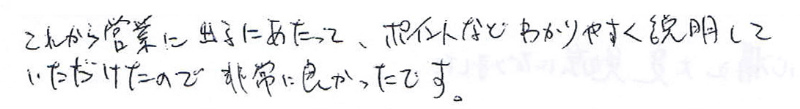 これから営業に出るにあたって、ポイントなどわかりやすく説明して
いただけたので非常に良かったです。